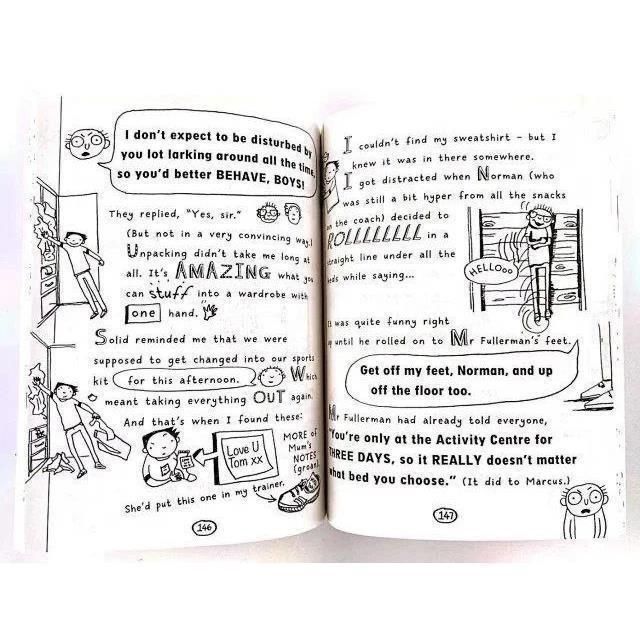 I don't expect to be disturbed by
you lot larking around all the time,
so you'd better BEHAVE, BOYS!
They replied, "Yes, sir."
(But not in a very convincing way.)
Unpacking didn't take me long at
all. It's AMAZING what you
can stuff into a wardrobe with
one hand.
Solid reminded me that we were
supposed to get changed into our sports
kit for this afternoon. Which
meant taking everything OUT again.
And that's when I found these:
Love U
Tom xx
MORE of
Mum's
NOTES
(groan).
She'd put this one in my trainer.
146
I couldn't find my sweatshirt – but I
knew it was in there somewhere.
I got distracted when Norman (who
was still a bit hyper from all the snacks
on the coach) decided to
ROLLLLLLLL in a
straight line under all the
beds while saying...
HELLOoo
It was quite funny right
up until he rolled on to Mr Fullerman's feet.
Get off my feet, Norman, and up
off the floor too.
Mr Fullerman had already told everyone,
"You're only at the Activity Centre for
THREE DAYS, so it REALLY doesn't matter
what bed you choose." (It did to Marcus.)
147